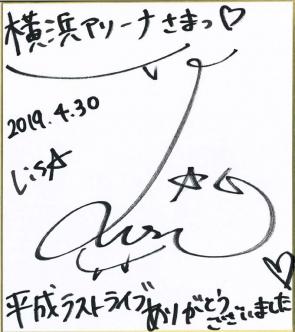 横浜アリーナさまっ♡
2019.4.30
LiSA
平成ラストライブありがとうございました♡